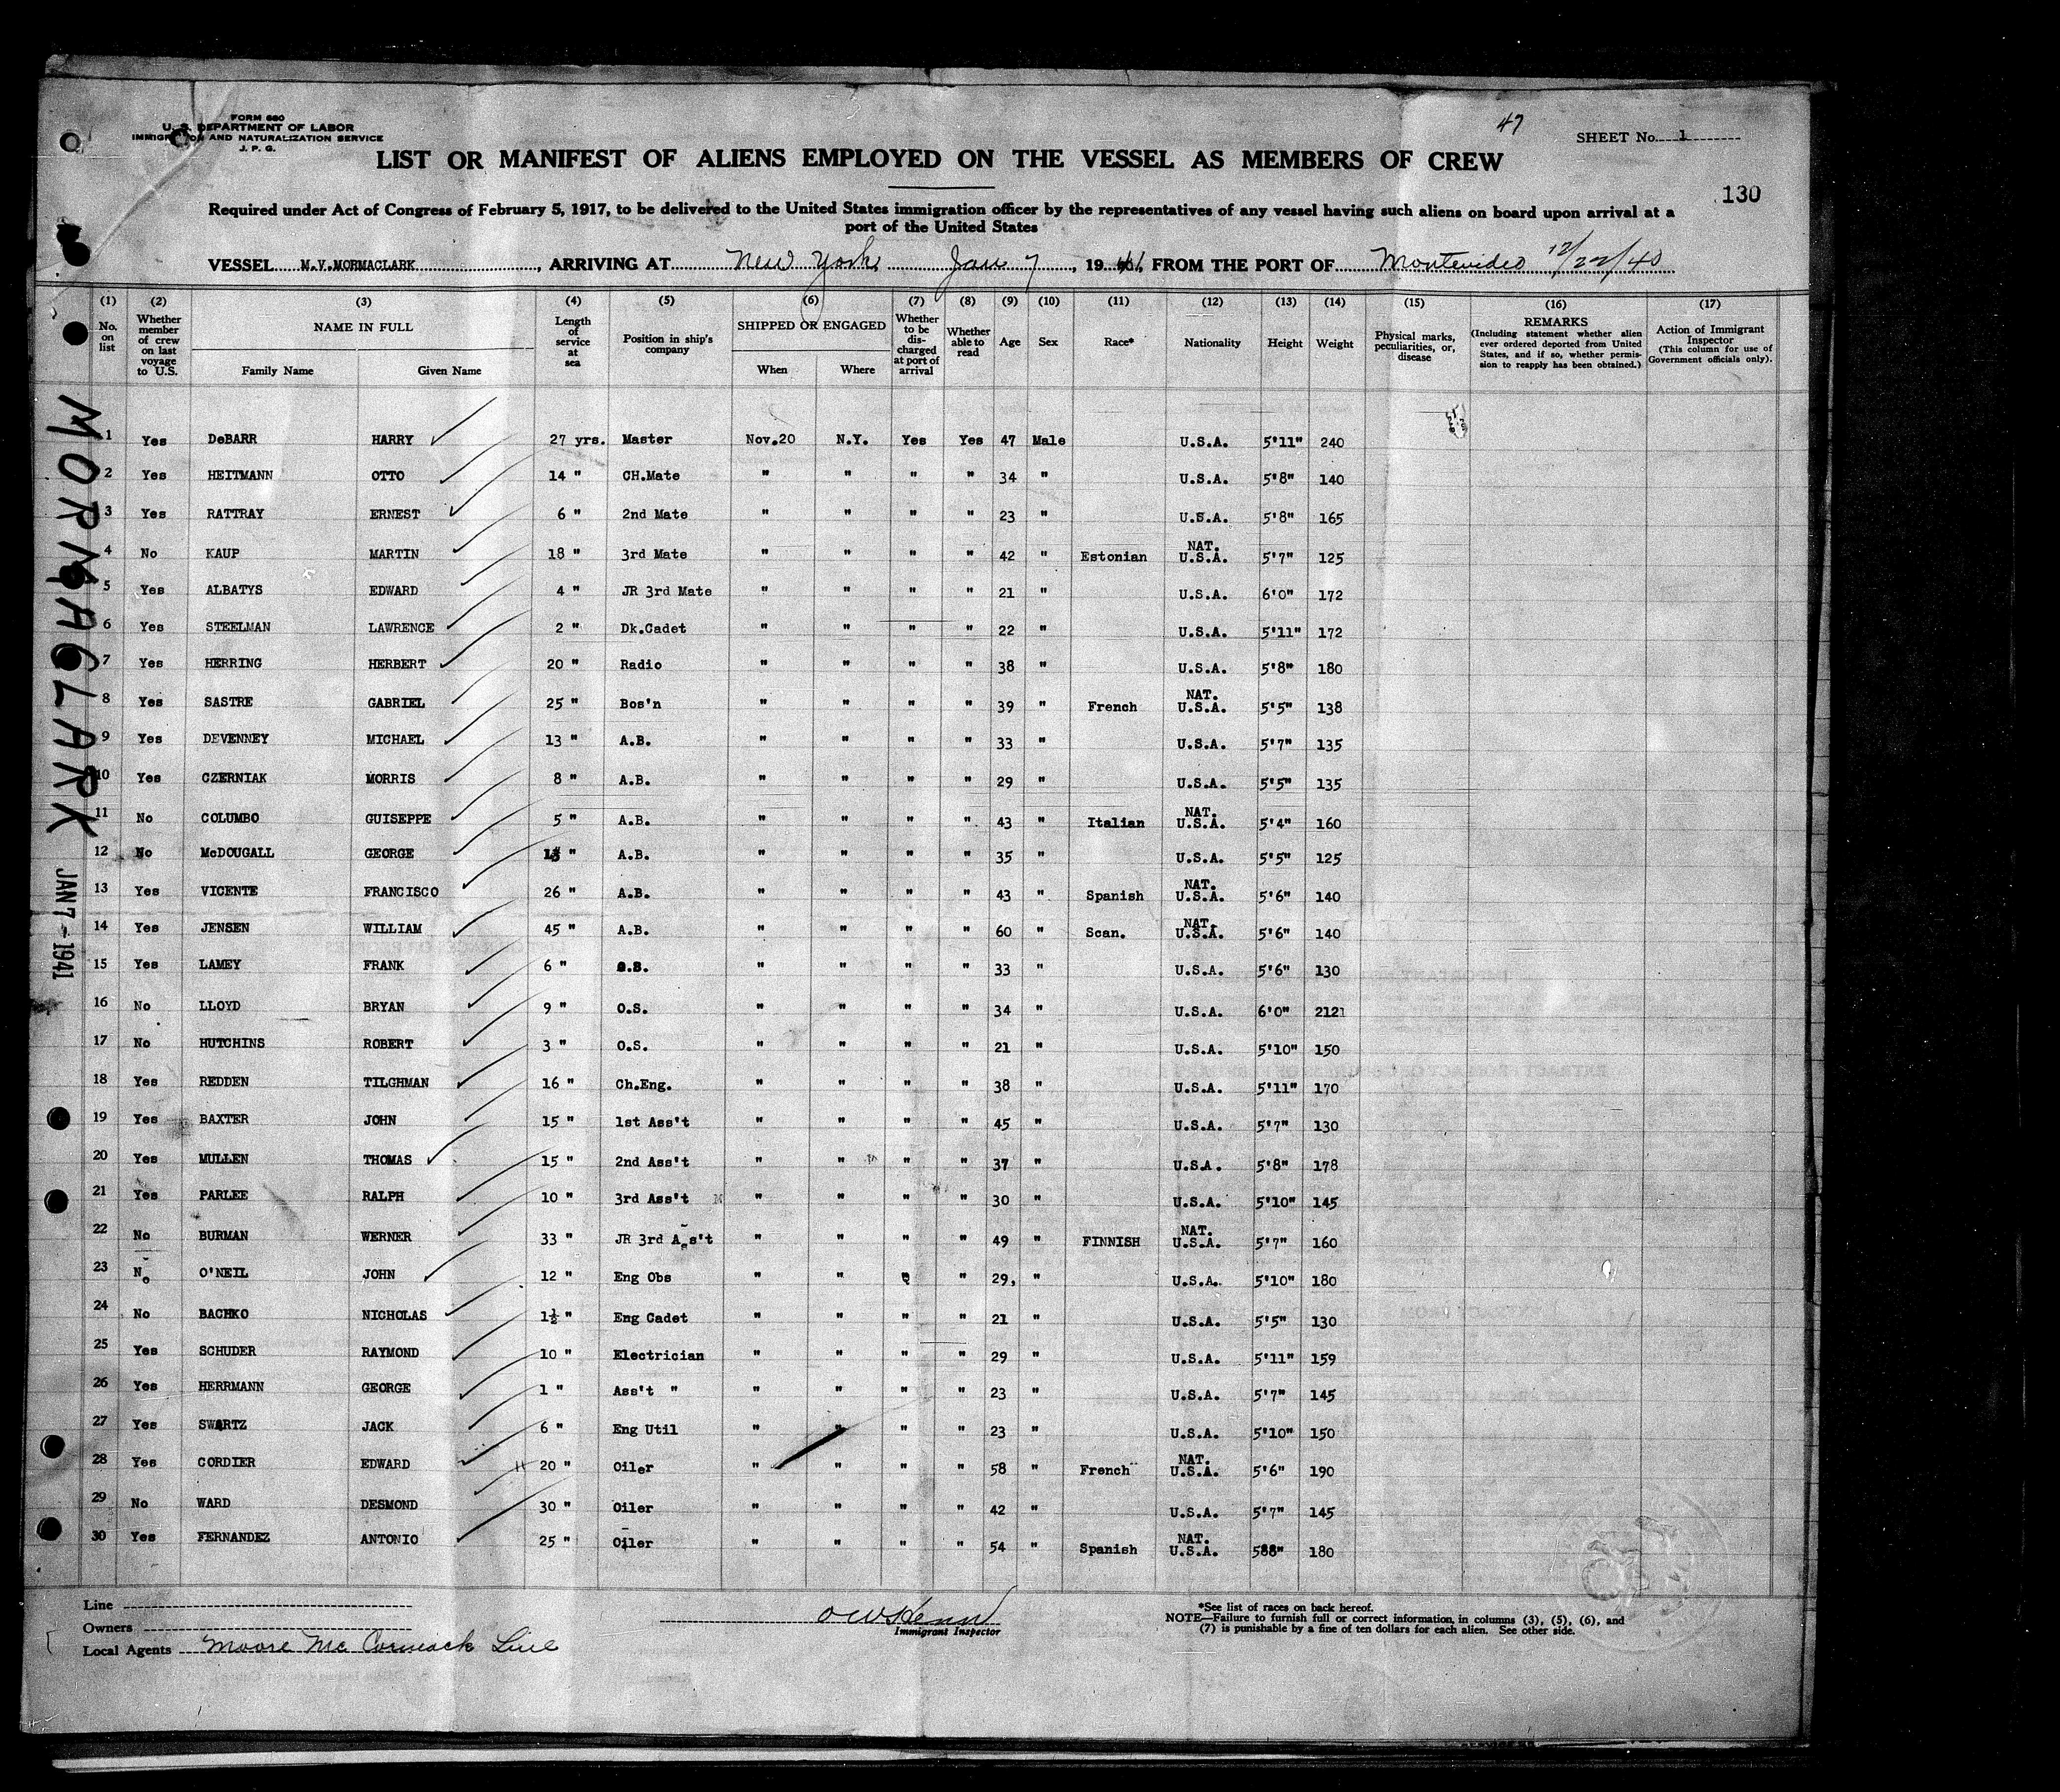 FORM 680
U. S. DEPARTMENT OF LABOR
IMMIGRATION AND NATURALIZATION SERVICE
J. P. G.
47
SHEET No. 1
LIST OR MANIFEST OF ALIENS EMPLOYED ON THE VESSEL AS MEMBERS OF CREW
130
Required under Act of Congress of February 5, 1917, to be delivered to the United States immigration officer by the representatives of any vessel having such aliens on board upon arrival at a
port of the United States
VESSEL M.V.MORMACLARK, ARRIVING AT New York Jan 7, 1941, FROM THE PORT OF Montevideo 12/22/40
(1) (2) (3) (4) (5) (6) (7) (8) (9) (10) (11) (12) (13) (14) (15) (16) (17)
No. on list
Whether member of crew on last voyage to U.S.
NAME IN FULL
Family Name Given Name
Length of service at sea
Position in ship's company
SHIPPED OR ENGAGED
When Where
Whether to be discharged at port of arrival
Whether able to read
Age
Sex
Race*
Nationality
Height
Weight
Physical marks, peculiarities, or, disease
REMARKS
(Including statement whether alien ever ordered deported from United States, and if so, whether permission to reapply has been obtained.)
Action of Immigrant Inspector
(This column for use of Government officials only).
1 Yes DeBARR HARRY 27 yrs. Master Nov.20 N.Y. Yes Yes 47 Male U.S.A. 5'11" 240
2 Yes HEITMANN OTTO 14 " CH.Mate " " " " 34 " U.S.A. 5'8" 140
3 Yes RATTRAY ERNEST 6 " 2nd Mate " " " " 23 " U.S.A. 5'8" 165
4 No KAUP MARTIN 18 " 3rd Mate " " " " 42 " Estonian NAT. U.S.A. 5'7" 125
5 Yes ALBATYS EDWARD 4 " JR 3rd Mate " " " " 21 " U.S.A. 6'0" 172
6 Yes STEELMAN LAWRENCE 2 " Dk.Cadet " " " " 22 " U.S.A. 5'11" 172
7 Yes HERRING HERBERT 20 " Radio " " " " 38 " U.S.A. 5'8" 180
8 Yes SASTRE GABRIEL 25 " Bos'n " " " " 39 " French NAT. U.S.A. 5'5" 138
9 Yes DEVENNEY MICHAEL 13 " A.B. " " " " 33 " U.S.A. 5'7" 135
10 Yes CZERNIAK MORRIS 8 " A.B. " " " " 29 " U.S.A. 5'5" 135
11 No COLUMBO GUISEPPE 5 " A.B. " " " " 43 " Italian NAT. U.S.A. 5'4" 160
12 No McDOUGALL GEORGE " A.B. " " " " 35 " U.S.A. 5'5" 125
13 Yes VICENTE FRANCISCO 26 " A.B. " " " " 43 " Spanish NAT. U.S.A. 5'6" 140
14 Yes JENSEN WILLIAM 45 " A.B. " " " " 60 " Scan. NAT. U.S.A. 5'6" 140
15 Yes LAMEY FRANK 6 " " " " " 33 " U.S.A. 5'6" 130
16 No LLOYD BRYAN 9 " O.S. " " " " 34 " U.S.A. 6'0" 2121
17 No HUTCHINS ROBERT 3 " O.S. " " " " 21 " U.S.A. 5'10" 150
18 Yes REDDEN TILGHMAN 16 " Ch.Eng. " " " " 38 " U.S.A. 5'11" 170
19 Yes BAXTER JOHN 15 " 1st Ass't " " " " 45 " U.S.A. 5'7" 130
20 Yes MULLEN THOMAS 15 " 2nd Ass't " " " " 37 " U.S.A. 5'8" 178
21 Yes PARLEE RALPH 10 " 3rd Ass't " " " " 30 " U.S.A. 5'10" 145
22 No BURMAN WERNER 33 " JR 3rd Ass't " " " " 49 " FINNISH NAT. U.S.A. 5'7" 160
23 No O'NEIL JOHN 12 " Eng Obs " " " " 29, " U.S.A. 5'10" 180
24 No BACHKO NICHOLAS 1½ " Eng Cadet " " " " 21 " U.S.A. 5'5" 130
25 Yes SCHUDER RAYMOND 10 " Electrician " " " " 29 " U.S.A. 5'11" 159
26 Yes HERRMANN GEORGE 1 " Ass't " " " " " 23 " U.S.A. 5'7" 145
27 Yes SWARTZ JACK 6 " Eng Util " " " " 23 " U.S.A. 5'10" 150
28 Yes CORDIER EDWARD 20 " Oiler " " " " 58 " French NAT. U.S.A. 5'6" 190
29 No WARD DESMOND 30 " Oiler " " " " 42 " U.S.A. 5'7" 145
30 Yes FERNANDEZ ANTONIO 25 " Oiler " " " " 54 " Spanish NAT. U.S.A. 588" 180
MORMACLARK
JAN 7 - 1941
Line
Owners
Local Agents Moore Mc Cormack Line
Immigrant Inspector
*See list of races on back hereof.
NOTE—Failure to furnish full or correct information, in columns (3), (5), (6), and
(7) is punishable by a fine of ten dollars for each alien. See other side.